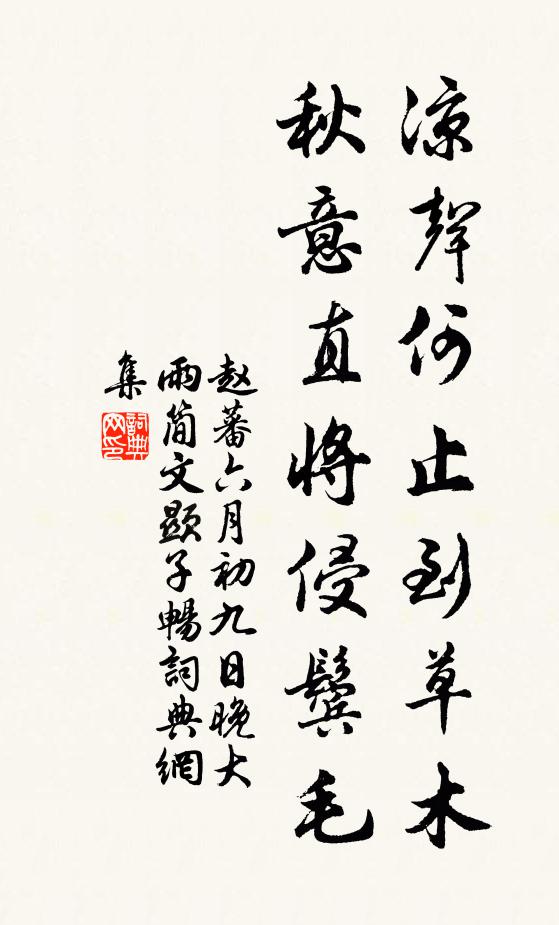 涼聲何止到草木
秋意直將侵鬢毛
赵蕃六月初九日晚大
雨简文顯子暢詞典網
集
詞典
网印